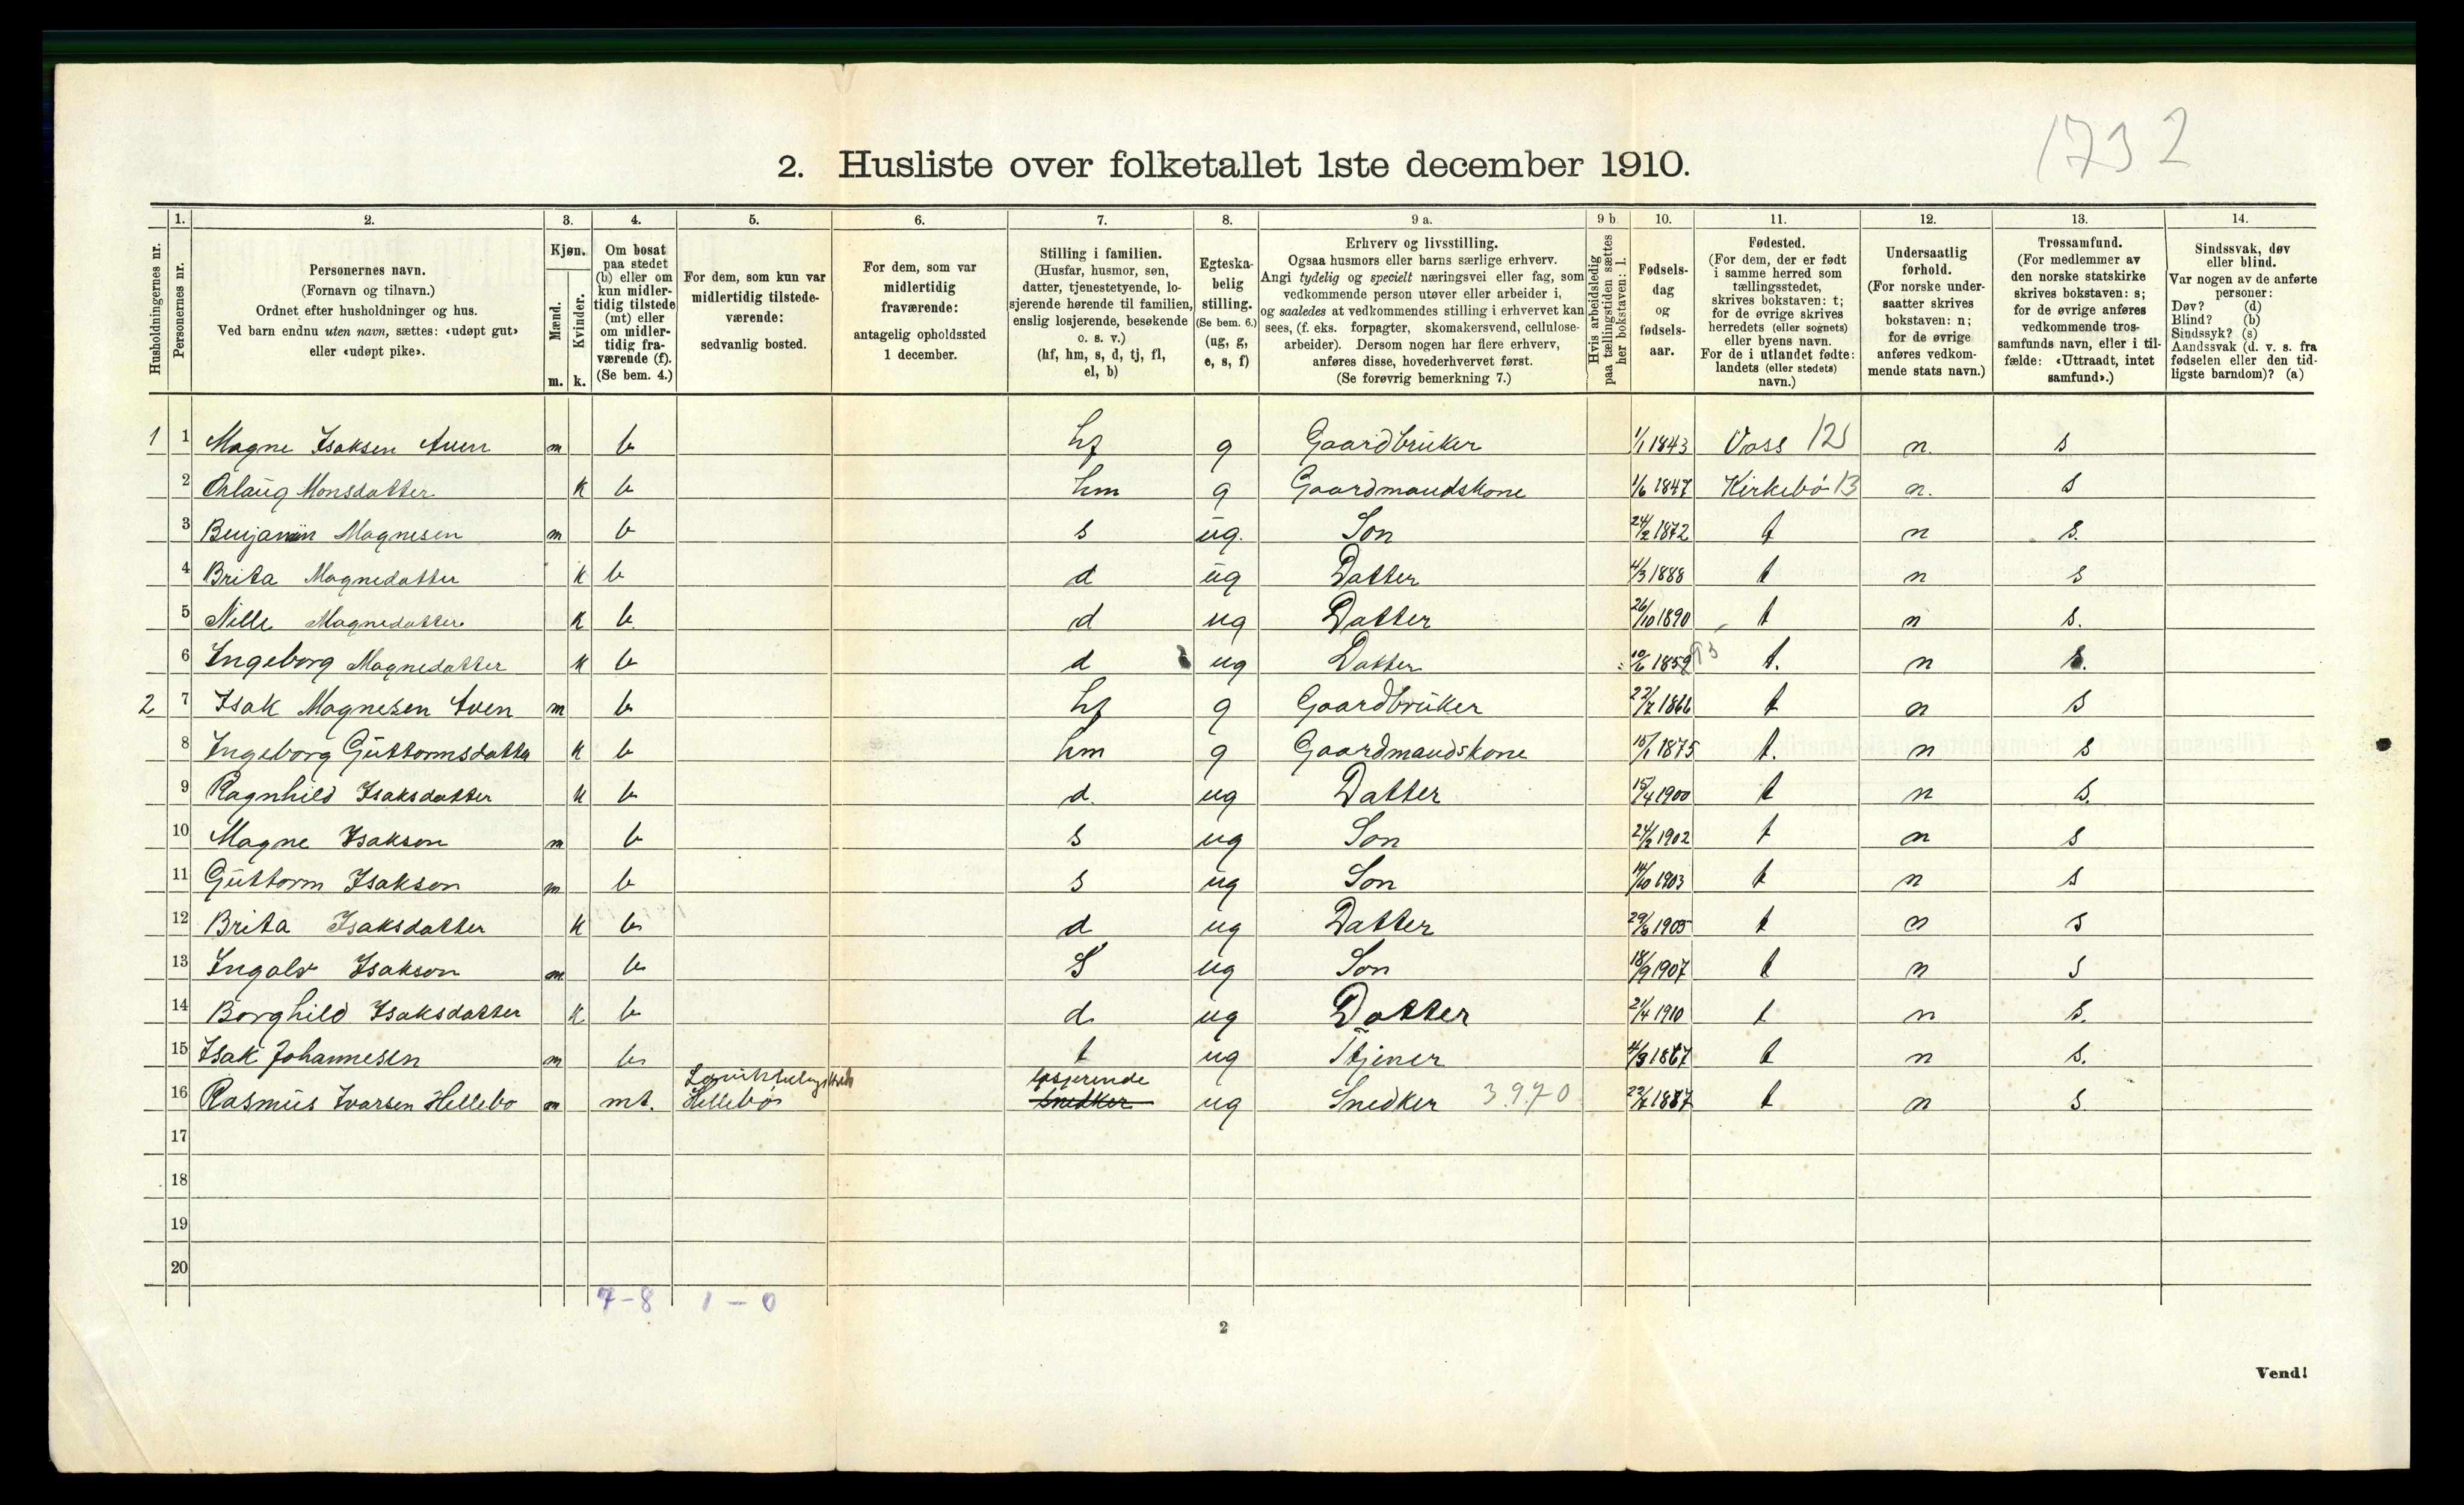 1732
2. Husliste over folketallet 1ste december 1910.
Husholdningernes nr.
1. Personernes nr.
2. Personernes navn. (Fornavn og tilnavn.) Ordnet efter husholdninger og hus. Ved barn endnu uten navn, sættes: «udøpt gut» eller «udøpt pike».
3. Kjøn. Mænd. m. Kvinder. k.
4. Om bosat paa stedet (b) eller om kun midler-tidig tilstede (mt) eller om midler-tidig fra-værende (f). (Se bem. 4.)
5. For dem, som kun var midlertidig tilstede-værende: sedvanlig bosted.
6. For dem, som var midlertidig fraværende: antagelig opholdssted 1 december.
7. Stilling i familien. (Husfar, husmor, søn, datter, tjenestetyende, lo-sjerende hørende til familien, enslig losjerende, besøkende o. s. v.) (hf, hm, s, d, tj, fl, el, b)
8. Egteska-belig stilling. (Se bem. 6.) (ug, g, e, s, f)
9 a. Erhverv og livsstilling. Ogsaa husmors eller barns særlige erhverv. Angi tydelig og specielt næringsvei eller fag, som vedkommende person utøver eller arbeider i, og saaledes at vedkommendes stilling i erhvervet kan sees, (f. eks. forpagter, skomakersvend, cellulose-arbeider). Dersom nogen har flere erhverv, anføres disse, hovederhvervet først. (Se forøvrig bemerkning 7.)
9 b. Hvis arbeidsledig paa tællingstiden sættes her bokstaven: l.
10. Fødsels-dag og fødsels-aar.
11. Fødested. (For dem, der er født i samme herred som tællingsstedet, skrives bokstaven: t; for de øvrige skrives herredets (eller sognets) eller byens navn. For de i utlandet fødte: landets (eller stedets) navn.)
12. Undersaatlig forhold. (For norske under-saatter skrives bokstaven: n; for de øvrige anføres vedkom-mende stats navn.)
13. Trossamfund. (For medlemmer av den norske statskirke skrives bokstaven: s; for de øvrige anføres vedkommende tros-samfunds navn, eller i til-fælde: «Uttraadt, intet samfund».)
14. Sindssvak, døv eller blind. Var nogen av de anførte personer: Døv? (d) Blind? (b) Sindssyk? (s) Aandssvak (d. v. s. fra fødselen eller den tid-ligste barndom)? (a)
1 1 Magne Isaksen Aven m b hf g Gaardbruker 1/1 1843 Voss 125 n. s
2 Orlaug Monsdatter k b hm g Gaardmandskone 1/6 1847 Kirkebö 13 n. s
3 Benjamin Magnesen m b s ug. Son 24/2 1872 t n s.
4 Brita Magnedatter k b d ug Datter 4/3 1888 t n s
5 Nille Magnedatter k b d ug Datter 26/10 1890 t n s.
6 Ingeborg Magnedatter k b d ug Datter 10/6 1859 93 t. n s.
2 7 Isak Magnesen Aven m b hf g Gaardbruker 22/7 1866 t n s
8 Ingeborg Guttormsdatter k b hm g Gaardmandskone 15/1 1875 t. n s
9 Ragnhild Isaksdatter k b d. ug Datter 15/4 1900 t n s.
10 Magne Isakson m b s ug Son 24/2 1902 t n s
11 Guttorm Isakson m b s ug Son 14/10 1903 t n s
12 Brita Isaksdatter k b d ug Datter 29/6 1905 t n s
13 Ingolv Isakson m b S ug Son 18/9 1907 t n s
14 Borghild Isaksdatter k b d. ug Datter 21/4 1910 t n s.
15 Isak Johannesen m b t ug Tjener 4/3 1867 t n s.
16 Rasmus Ivarsen Hellebo m mt. Hellebö losjerende snedker ug Snedker 3.9.70 22/7 1887 t n s
17
18
19
20
7-8 1-0
2
Vend!